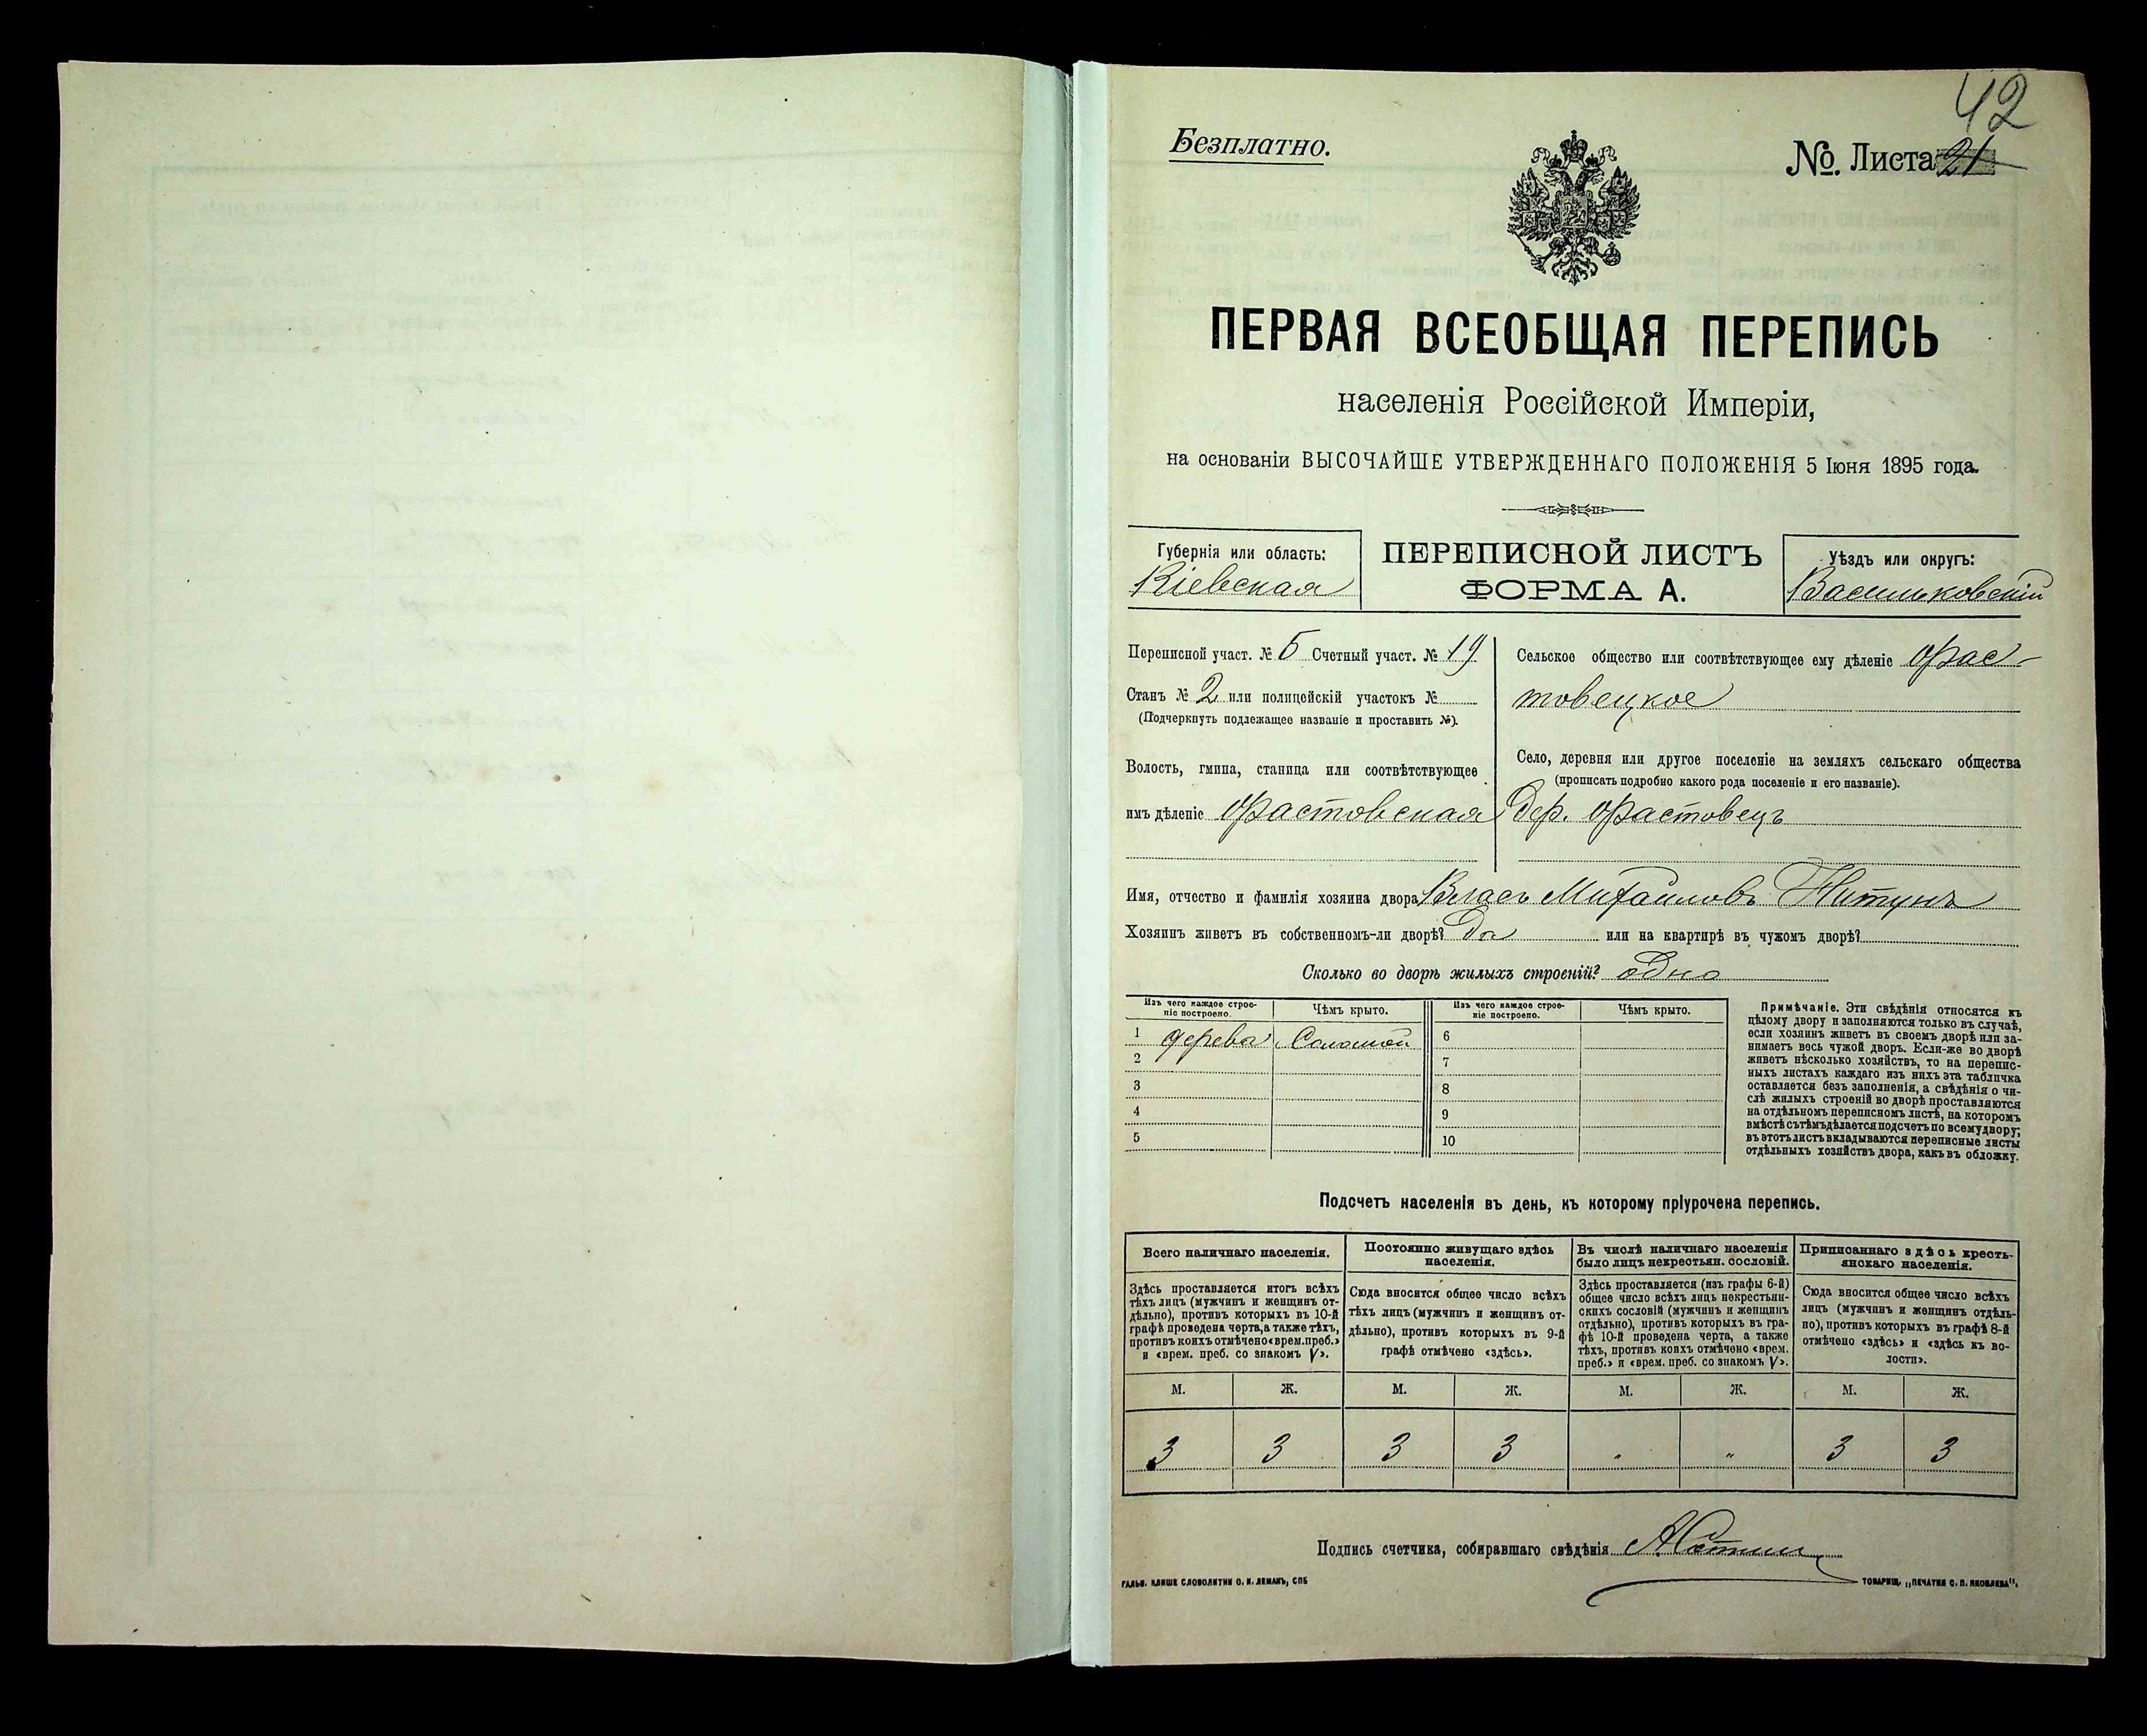 42
Безплатно.
№. Листа 21
ПЕРВАЯ ВСЕОБЩАЯ ПЕРЕПИСЬ
населенія Россійской Имперіи,
на основаніи ВЫСОЧАЙШЕ УТВЕРЖДЕННАГО ПОЛОЖЕНІЯ 5 Іюня 1895 года.
Губернія или область:
Кіевская
ПЕРЕПИСНОЙ ЛИСТЪ
ФОРМА А.
Уѣздъ или округъ:
Васильковскій
Переписной участ. № 5 Счетный участ. № 19
Станъ № 2 или полицейскій участокъ №
(Подчеркнуть подлежащее названіе и проставить №).
Волость, гмина, станица или соотвѣтствующее
имъ дѣленіе Фастовская
Сельское общество или соотвѣтствующее ему дѣленіе Фас-
товецкое
Село, деревня или другое поселеніе на земляхъ сельскаго общества
(прописать подробно какого рода поселеніе и его названіе).
дер. Фастовецъ
Имя, отчество и фамилія хозяина двора Власъ Михайловъ
Хозяинъ живетъ въ собственномъ-ли дворѣ? Да или на квартирѣ въ чужомъ дворѣ?
Сколько во дворѣ жилыхъ строеній? одно
Изъ чего каждое строе-
ніе построено.
Чѣмъ крыто.
Изъ чего каждое строе-
ніе построено.
Чѣмъ крыто.
1 дерева Соломой 6
2 7
3 8
4 9
5 10
Примѣчаніе. Эти свѣдѣнія относятся къ
цѣлому двору и заполняются только въ случаѣ,
если хозяинъ живетъ въ своемъ дворѣ или за-
нимаетъ весь чужой дворъ. Если-же во дворѣ
живетъ нѣсколько хозяйствъ, то на перепис-
ныхъ листахъ каждаго изъ нихъ эта табличка
оставляется безъ заполненія, а свѣдѣнія о чи-
слѣ жилыхъ строеній во дворѣ проставляются
на отдѣльномъ переписномъ листѣ, на которомъ
вмѣстѣ съ тѣмъ дѣлается подсчетъ по всему двору;
въ этотъ листъ вкладываются переписные листы
отдѣльныхъ хозяйствъ двора, какъ въ обложку.
Подсчетъ населенія въ день, къ которому пріурочена перепись.
Всего наличнаго населенія.
Здѣсь проставляется итогъ всѣхъ
тѣхъ лицъ (мужчинъ и женщинъ от-
дѣльно), противъ которыхъ въ 10-й
графѣ проведена черта, а также тѣхъ,
противъ коихъ отмѣчено «врем. преб.»
и «врем. преб. со знакомъ V».
Постоянно живущаго здѣсь
населенія.
Сюда вносится общее число всѣхъ
тѣхъ лицъ (мужчинъ и женщинъ от-
дѣльно), противъ которыхъ въ 9-й
графѣ отмѣчено «здѣсь».
Въ числѣ наличнаго населенія
было лицъ некрестьян. сословій.
Здѣсь проставляется (изъ графы 6-й)
общее число всѣхъ лицъ некрестьян-
скихъ сословій (мужчинъ и женщинъ
отдѣльно), противъ которыхъ въ гра-
фѣ 10-й проведена черта, а также
тѣхъ, противъ коихъ отмѣчено «врем.
преб.» и «врем. преб. со знакомъ V».
Приписаннаго здѣсь кресть-
янскаго населенія.
Сюда вносится общее число всѣхъ
лицъ (мужчинъ и женщинъ отдѣль-
но), противъ которыхъ въ графѣ 8-й
отмѣчено «здѣсь» и «здѣсь къ во-
лости».
М. Ж. М. Ж. М. Ж. М. Ж.
3 3 3 3 " " 3 3
Подпись счетчика, собиравшаго свѣдѣнія
ГАЛЬВ. КЛИШЕ СЛОВОЛИТНИ О. И. ЛЕМАНЪ, СПБ
ТОВАРИЩ. „ПЕЧАТНЯ С. П. ЯКОВЛЕВА".